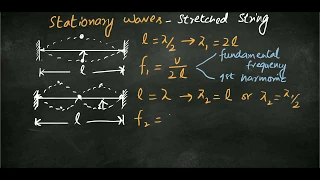 Stationary Waves - Stretched String
l = λ/2 → λ₁ = 2l
f₁ = v/2l
fundamental frequency
1st harmonic
l
l = λ → λ₂ = l or λ₂ = λ₁/2
f₂ =
l